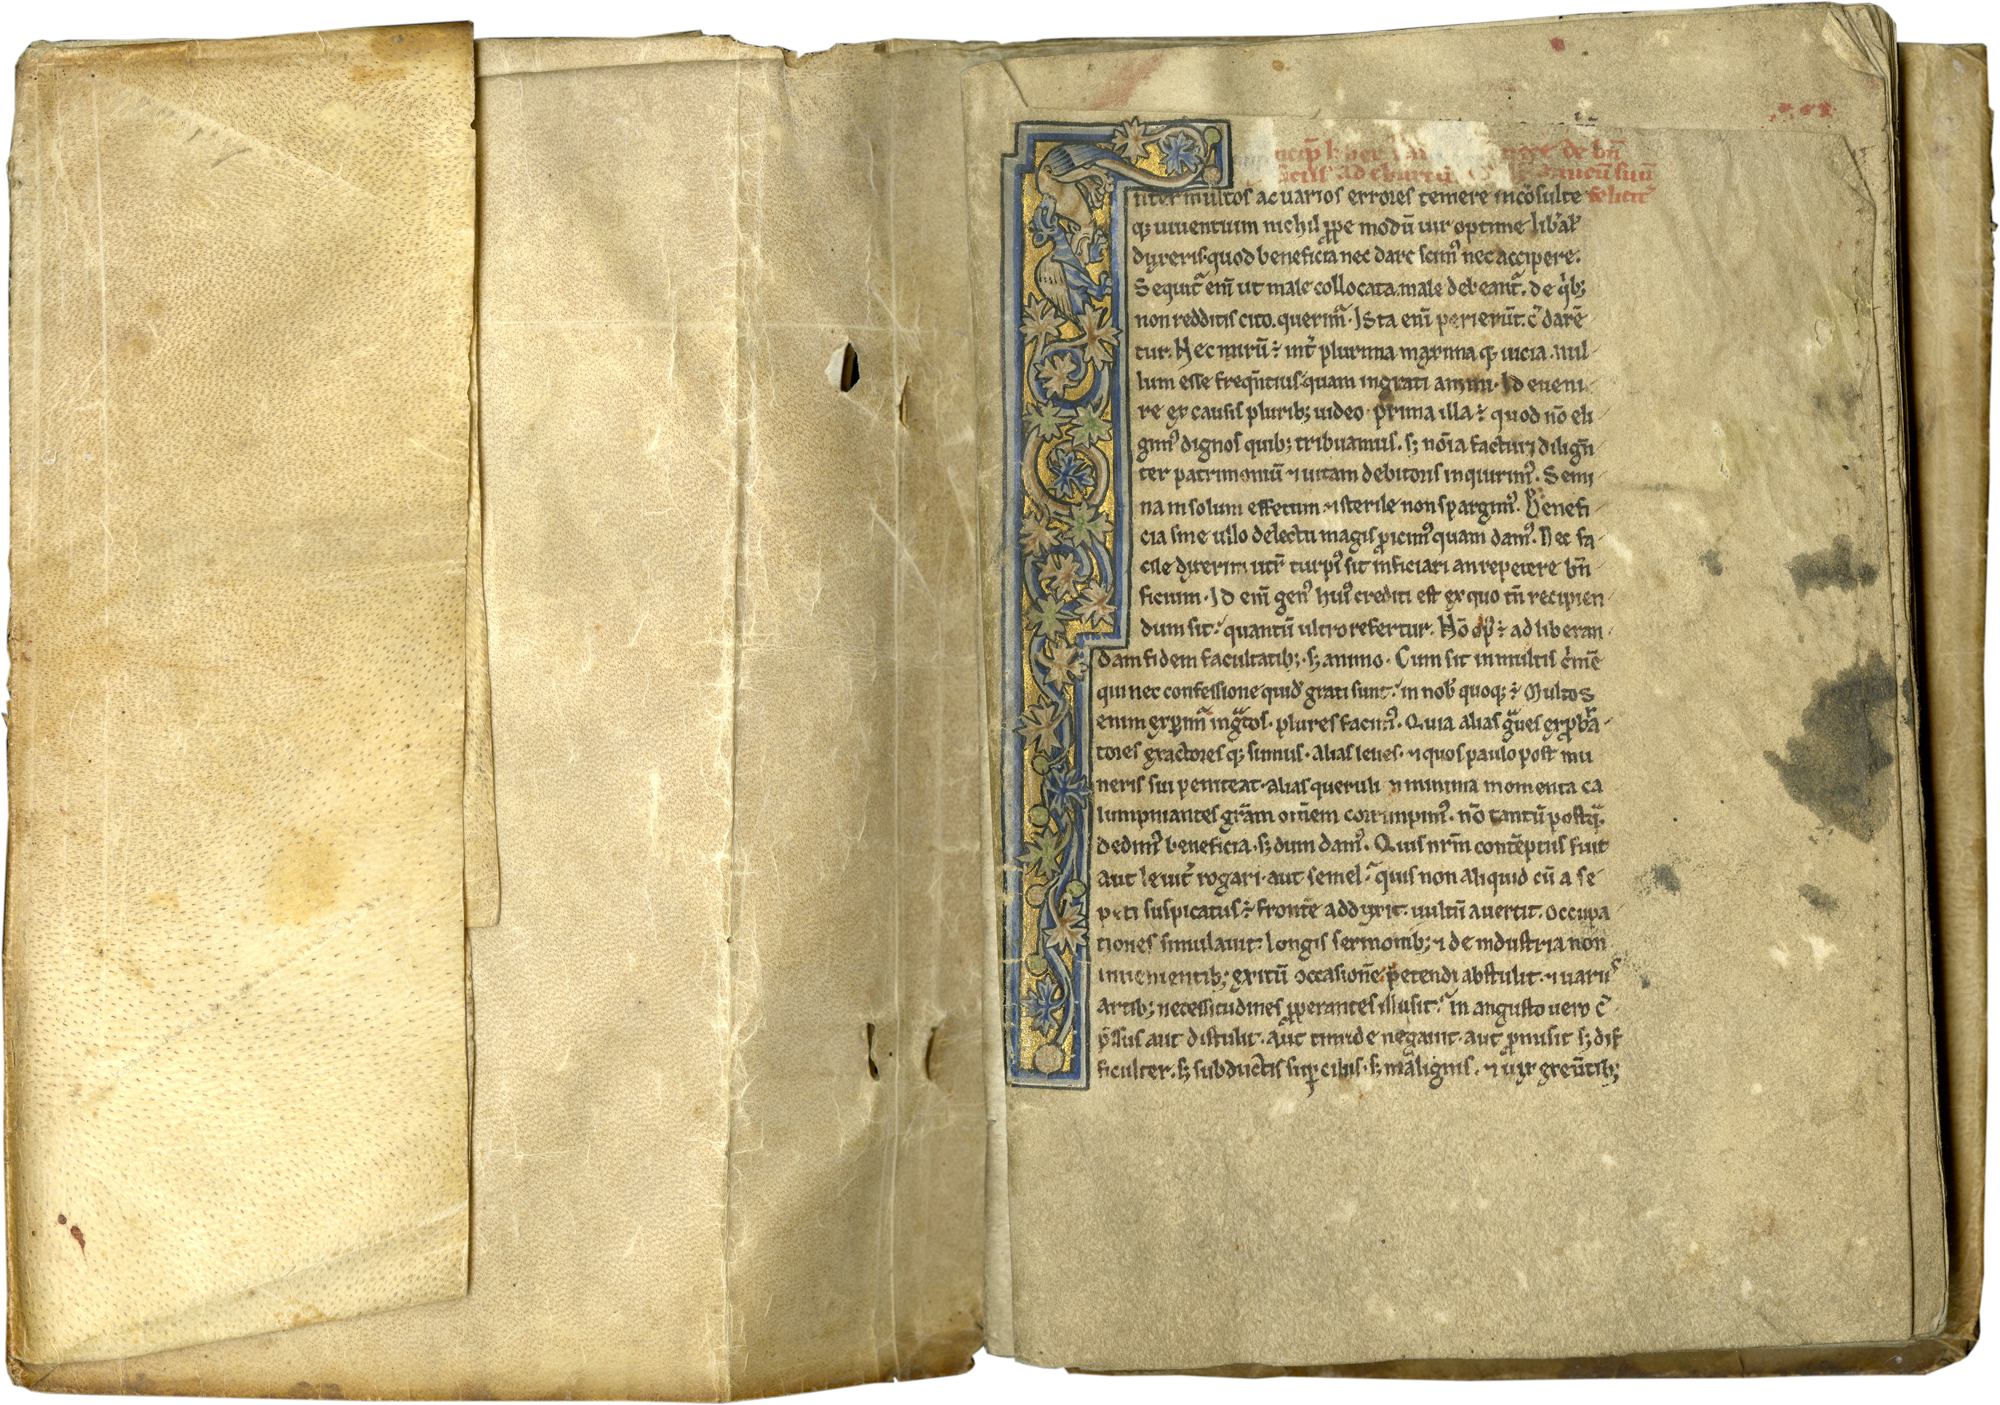 de bn̄
ad
felicit᷑
nter multos ac uarios errores temere incōsulte
q; uiuentium nichil ꝓpe modū uir optime lib̾al᷑
dyxeris. quod beneficia nec dare scim᷒ nec accipere.
Sequit᷑ eni᷑ ut male collocata. male debeant᷑. de q̾b;
non redditis cito. querim᷑. Ista eni᷑ perierūt. c̄ dare
tur. Nec mirū ÷ int᷑ plurima maxima q; uicia. nul
lum esse freq̄ntius. quam ingrati animi. Id eueni
re ex causis plurib; uideo. prima illa ÷ quod nō eli
gim᷒ dignos quib; tribuamus. s; noīa facturi dilign̄
ter patrimoniū ⁊ uitam debitoris inquirim᷒. Semi
na in solum effetum ⁊ sterile non spargim᷒. Benefi
cia sine ullo delectu magis ꝓicim᷒ quam dam᷒. Nec fa
cile dyxerim utr̄ turpi᷒ sit inficiari an repetere bn̄
ficium. Id eni᷑ gen᷒ hui᷒ crediti est ex quo tn̄ recipien
dum sit. quantū ultro refertur. Nō op᷒ ÷ ad liberan
dam fidem facultatib;. s; animo. Cum sit in multis c̾mē
qui nec confessione quidē grati sunt. in nob̾ quoq; ÷ Multos
enim exꝑim᷑ ingᷓtos. plures facim᷒. Quia alias gᷓues exp̾bᷓ
tores exactores q; sumus. alias leues. ⁊ quos paulo post mu
neris sui peniteat. alias queruli ⁊ minima momenta ca
lumpniantes grᷓm om̄em corrumpim᷒. nō tantū postqᷓ.
dedim᷒ beneficia. s; dum dam᷒. Quis nr̄m contēptus fuit
aut leuit᷑ rogari. aut semel. quis non aliquid cū a se
peti suspicatus ÷ frontē addyxit. uultū auertit. occupa
tiones simulauit. longis sermonib; ⁊ de industria non
inuenientib; exitū occasionē petendi abstulit. ⁊ uariis
artib; necessitudines ꝓperantes illusit. in angusto uero c̄
p̄ssus aut distulit. aut timide negauit. aut ꝓmisit s; dif
ficulter. s; subductis suꝑciliis. s; malignis. ⁊ uyx exeūtib;